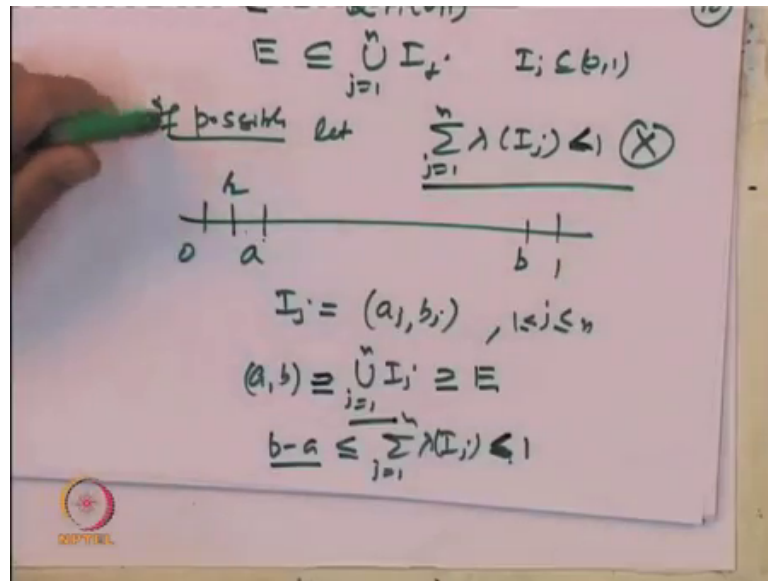 E ⊆ ⋃_{j=1}^{n} I_j. I_j ⊆ [0,1)
If possible let ∑_{j=1}^{n} λ(I_j) < 1 ⓧ
r
0 a b 1
I_j = (a_j, b_j), 1≤j≤n
(a,b) ⊇ ⋃_{j=1}^{n} I_j ⊇ E
b-a ≤ ∑_{j=1}^{n} λ(I_j) < 1
NPTEL